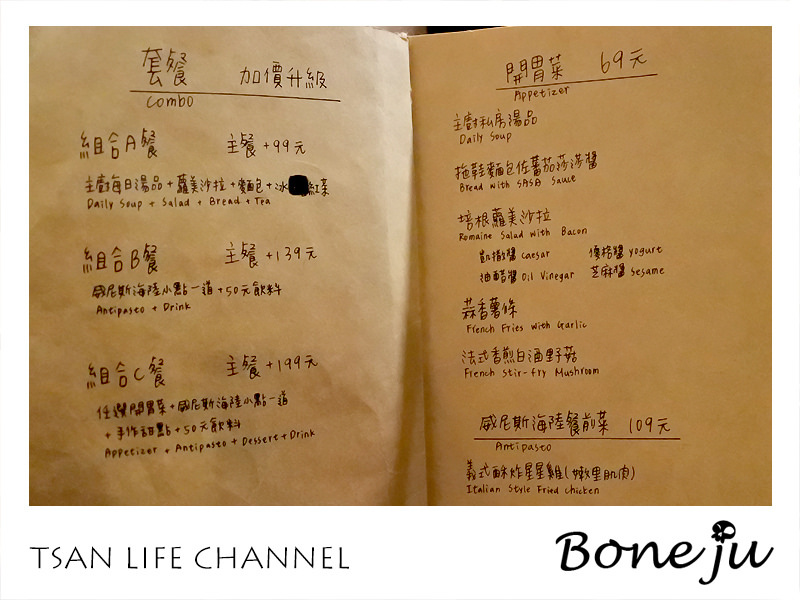 套餐 加價升級
Combo
組合A餐 主餐+99元
主廚每日湯品+蘿美沙拉+麵包+冰紅茶
Daily Soup + Salad + Bread + Tea
組合B餐 主餐+139元
威尼斯海陸小點一道+50元飲料
Antipasto + Drink
組合C餐 主餐+199元
任選開胃菜+威尼斯海陸小點一道
+手作甜點+50元飲料
Appetizer + Antipasto + Dessert + Drink
開胃菜 69元
Appetizer
主廚私房湯品
Daily Soup
拖鞋麵包佐蕃茄莎莎醬
Bread with SASA Sauce
培根蘿美沙拉
Romaine Salad with Bacon
凱撒醬 Caesar 優格醬 yogurt
油醋醬 Oil Vinegar 芝麻醬 Sesame
蒜香薯條
French Fries with Garlic
法式香煎白酒野菇
French Stir-fry Mushroom
威尼斯海陸餐前菜 109元
Antipasto
義式酥炸星星雞(嫩里肌肉)
Italian Style Fried Chicken
TSAN LIFE CHANNEL
Boneju